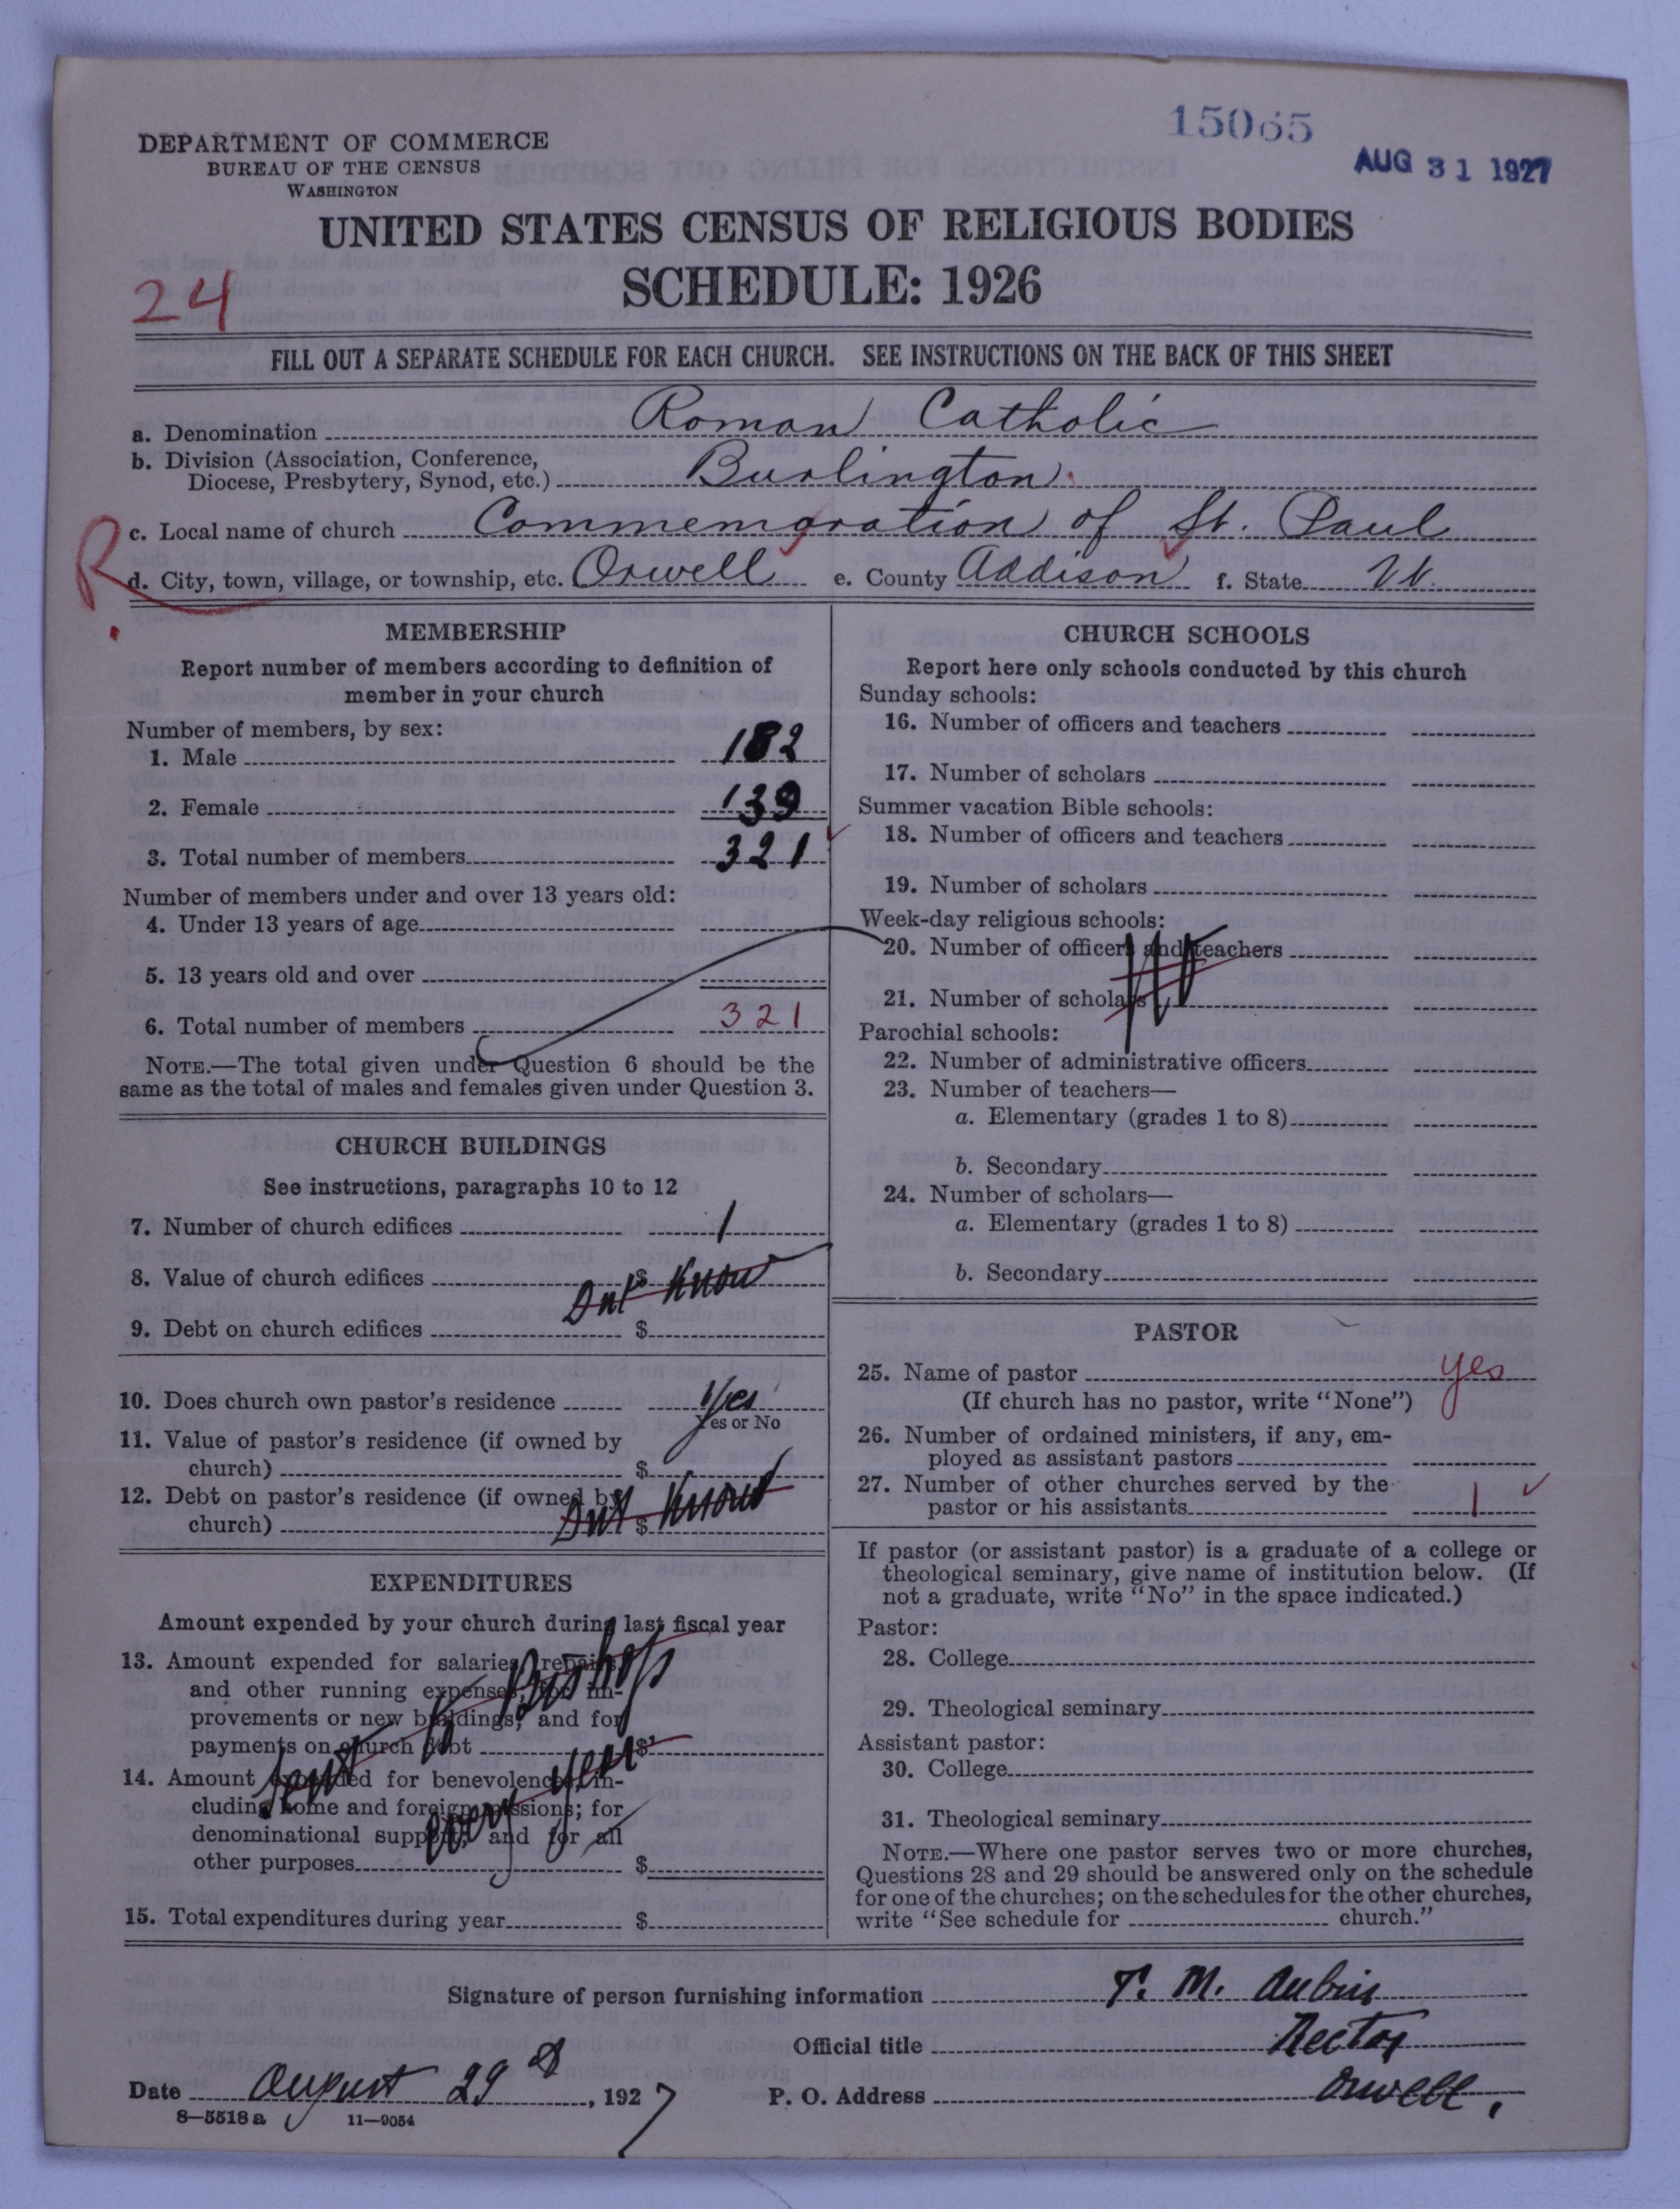 15065
AUG 31 1927
DEPARTMENT OF COMMERCE
BUREAU OF THE CENSUS
WASHINGTON
UNITED STATES CENSUS OF RELIGIOUS BODIES
SCHEDULE: 1926
24
FILL OUT A SEPARATE SCHEDULE FOR EACH CHURCH. SEE INSTRUCTIONS ON THE BACK OF THIS SHEET
a. Denomination Roman Catholic
b. Division (Association, Conference,
Diocese, Presbytery, Synod, etc.) Burlington
c. Local name of church Commemoration of St. Paul
R
d. City, town, village, or township, etc. Orwell e. County Addison f. State Vt.
MEMBERSHIP
Report number of members according to definition of
member in your church
Number of members, by sex:
1. Male 182
2. Female 139
3. Total number of members 321
Number of members under and over 13 years old:
4. Under 13 years of age
5. 13 years old and over
6. Total number of members 321
NOTE.—The total given under Question 6 should be the
same as the total of males and females given under Question 3.
CHURCH BUILDINGS
See instructions, paragraphs 10 to 12
7. Number of church edifices 1
8. Value of church edifices $
Dnt Know
9. Debt on church edifices $
10. Does church own pastor's residence Yes
Yes or No
11. Value of pastor's residence (if owned by
church) $
12. Debt on pastor's residence (if owned by
church) $ Dnt Know
EXPENDITURES
Amount expended by your church during last fiscal year
13. Amount expended for salaries, repairs,
and other running expenses; for im-
provements or new buildings; and for
payments on church debt $
sent to Bishop
every year
14. Amount expended for benevolences, in-
cluding home and foreign missions; for
denominational support; and for all
other purposes $
15. Total expenditures during year $
CHURCH SCHOOLS
Report here only schools conducted by this church
Sunday schools:
16. Number of officers and teachers
17. Number of scholars
Summer vacation Bible schools:
18. Number of officers and teachers
19. Number of scholars
Week-day religious schools:
20. Number of officers and teachers
21. Number of scholars
Parochial schools:
22. Number of administrative officers
23. Number of teachers—
a. Elementary (grades 1 to 8)
b. Secondary
24. Number of scholars—
a. Elementary (grades 1 to 8)
b. Secondary
PASTOR
25. Name of pastor yes
(If church has no pastor, write "None")
26. Number of ordained ministers, if any, em-
ployed as assistant pastors
27. Number of other churches served by the
pastor or his assistants 1
If pastor (or assistant pastor) is a graduate of a college or
theological seminary, give name of institution below. (If
not a graduate, write "No" in the space indicated.)
Pastor:
28. College
29. Theological seminary
Assistant pastor:
30. College
31. Theological seminary
NOTE.—Where one pastor serves two or more churches,
Questions 28 and 29 should be answered only on the schedule
for one of the churches; on the schedules for the other churches,
write "See schedule for church."
Signature of person furnishing information T. M. Aubin
Official title Rector
Date August 29 d, 1927 P. O. Address Orwell,
8—5518 a 11—9054